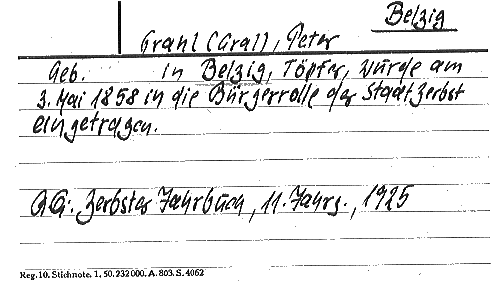 Belzig
Grahl (Grall), Peter
Geb. in Belzig, Töpfer, wurde am
3. Mai 1858 in die Bürgerrolle der Stadt Zerbst
eingetragen.
QG: Zerbster Jahrbuch, 11. Jahrg., 1925
Reg. 10. Stichnote. 1, 50. 232000. A. 803. S. 4062